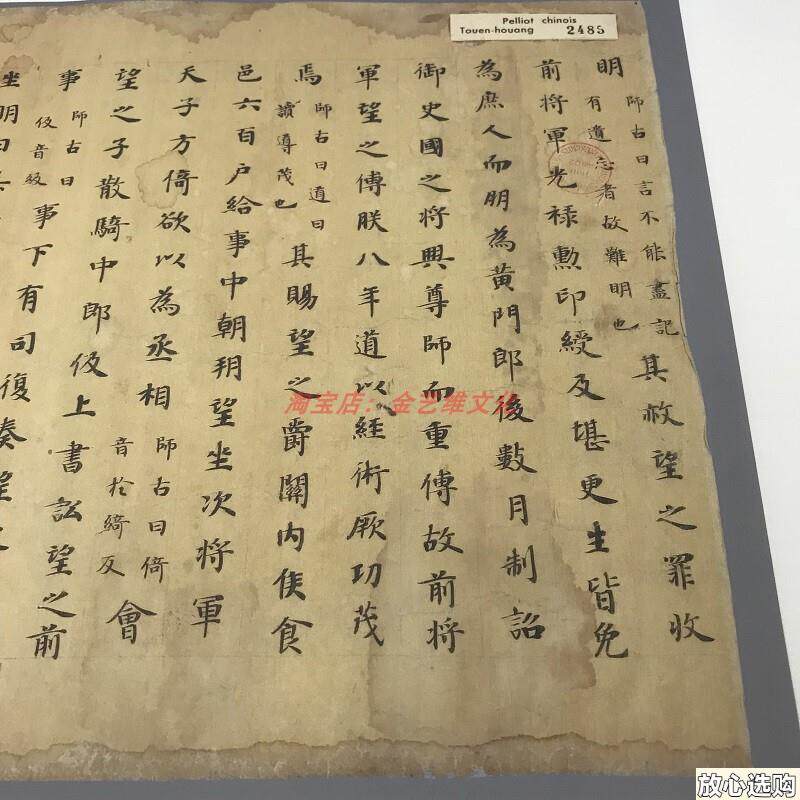 Pelliot chinois
Touen-houang 2485
明師古曰言不能盡記有遺忘者故難明也其赦望之罪收
前將軍光祿勳印綬及堪更生皆免
為庶人而明為黃門郎後數月制詔
御史國之將興尊師而重傅故前將
軍望之傅朕八年道以經術厥功茂
焉師古曰道曰讀導茂也其賜望之爵關內侯食
邑六百戶給事中朝朔望坐次將軍
天子方倚欲以為丞相師古曰倚音於綺反會
望之子散騎中郎伋上書訟望之前
事師古曰伋音級事下有司復奏望之
坐明白
淘宝店：金艺维文化
放心选购